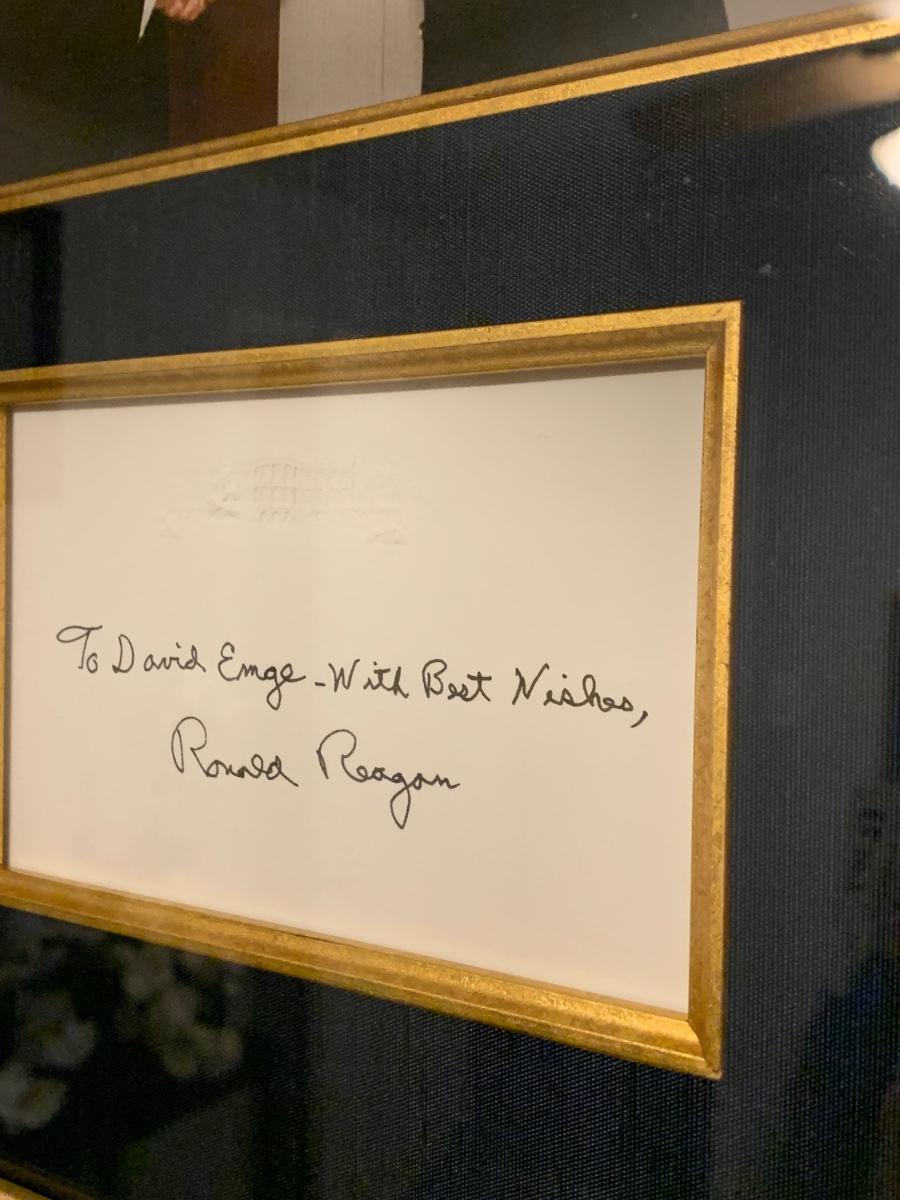 To David Emge - With Best Wishes,
Ronald Reagan